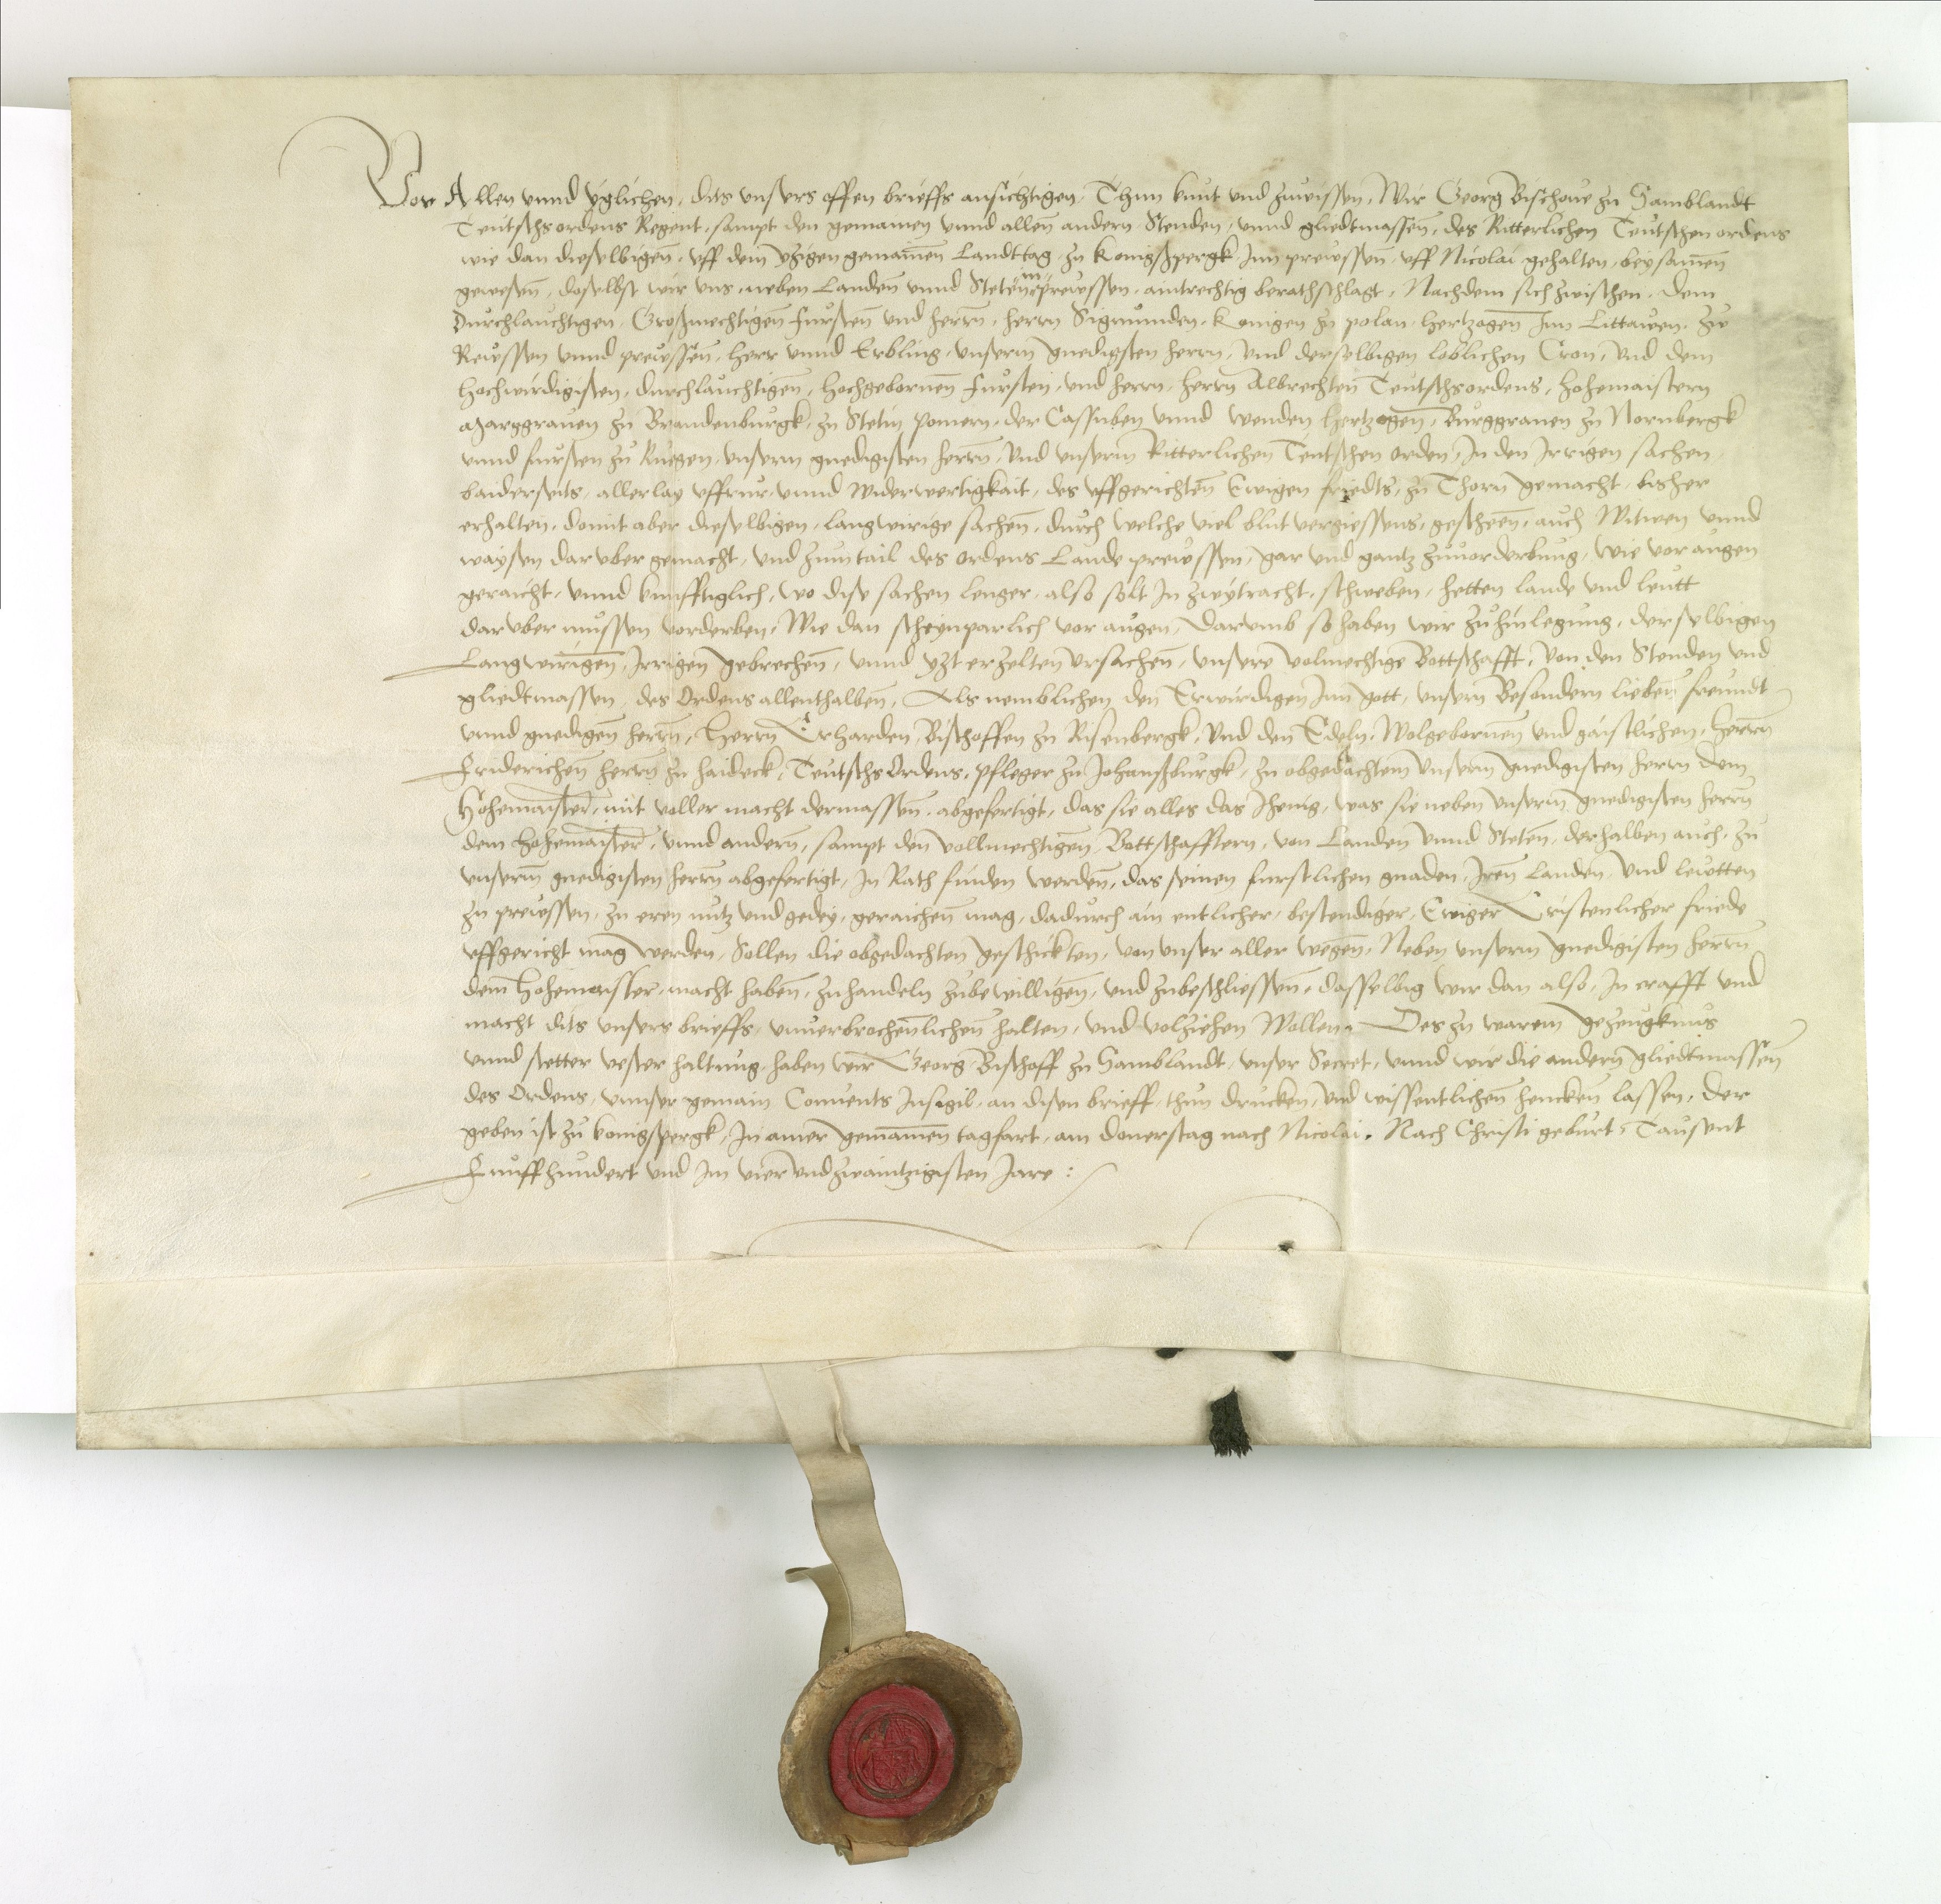 Vor Allen vnnd yglichen, dits vnsers offen brieffs ansichtigen, Thun kunt vnd zuwissen, Wir Georg Bischoue zu Samblandt
Teutschsordens Regent, sampt den gemainen vnnd allen andern Stenden, vnnd gliedtmassen, des Ritterlichen Teutschen ordens
wie dan dieselbigen, vff dem yzigen gemainen Landttag, zu Konigßpergk, Inn preussen, vff Nicolai gehalten, beysamen
gewesen, doselbst wir vns, neben Landen vnnd Steten im preussen, aintrechtig berathschlagt, Nachdem sich zwischen, dem
Durchlauchtigen, Großmechtigen fursten vnd herrn, herrn Sigmunden, Konigen zu polan, hertzogen Inn Littawen, zu
Reussen vnnd preussen, herr vnnd Erbling, vnserm gnedigsten herrn, vnd derselbigen loblichen Cron, vnd dem
hochwirdigisten, durchlauchtigen, hochgebornen fursten, vnd herrn, herrn Albrechten Teutschsordens, hohemaistern
Marggrauen zu Brandenburgk, zu Stetin pomern, der Cassuben vnnd wenden hertzogen, Burggrauen zu Nornbergk
vnnd fursten zu Rugen, vnserm gnedigisten herrn, vnd vnserm Ritterlichen Teutschen orden, In den Irrigen sachen,
baiderseits, allerlay vffrur, vnnd widerwertigkait, des vffgerichten Ewigen friedts, zu Thorn gemacht, bisher
erhalten, domit aber dieselbigen, langwirige sachen, durch welche viel blut vergiessens, gescheen, auch Witwen vnnd
waysen daruber gemacht, vnd zumtail des ordens Lande preussen, gar vnd gantz zuuorderbung, wie vor augen
geraicht, vnnd kunfftiglich, wo dise sachen lenger, also solt In zwytracht, schweben, hetten lande vnd leutt
daruber mussen vorderben, Wie dan scheynparlich vor augen, Darumb so haben wir zu hinlegung, derselbigen
Langwirigen, Irrigen gebrechen, vnnd yzt erzelten vrsachen, vnsere volmechtige Bottschafft, von den Stenden vnd
gliedtmassen, des Ordens allenthalben, Als nemblichen den Erwirdigen Inn gott, vnsern Besondern lieben freundt
vnnd gnedigen herrn, Herrn Erharden, Bischoffen zu Risenbergk, vnd den Edeln, Wolgebornen vnd gaistlichen, Herrn
Friderichen herrn zu haideck, Teutschs Ordens, pfleger zu Johanßburgk, zu obgedachtem vnserm gnedigisten herrn dem
Hohemaister, mit voller macht dermassen, abgefertigt, das sie alles das Jhenig, was sie neben vnserm gnedigsten herrn
dem Hohemaister, vnnd andern, sampt den vollmechtigen Bottschafftern, von Landen vnnd Steten, derhalben auch, zu
vnserm gnedigsten herrn abgefertigt, In Rath finden werden, das seinen furstlichen gnaden, Iren Landen, vnd leutten
zu preussen, zu eren nutz vnd gedey, geraichen mag, dadurch ain entlicher, bestendiger, Ewiger Cristenlicher friede
vffgericht mag werden, Sollen die obgedachten geschickten, von vnser aller wegen, Neben vnserm gnedigisten herrn
dem Hohemaister, macht haben, zuhandeln zubewilligen, vnd zubeschliessen, dasselbig wir dan also, In crafft vnd
macht dits vnsers brieffs, vnuerbrochenlichen halten, vnd volziehen Wollen. Des zu warem gezeugknus
vnnd stetter vester haltung, haben wir Georg Bischoff zu Samblandt, vnser Secret, vnnd wir die andern gliedtmassen
des Ordens, vnnser gemain Conuents Insigil, an disen brieff, thun drucken, vnd wissentlichen hencken lassen, Der
geben ist zu konigspergk, In ainer gemainen tagfart, am donerstag nach Nicolai. Nach Christi geburt, Tausent
Funffhundert vnd Im vier vnd zwaintzigisten Jare :